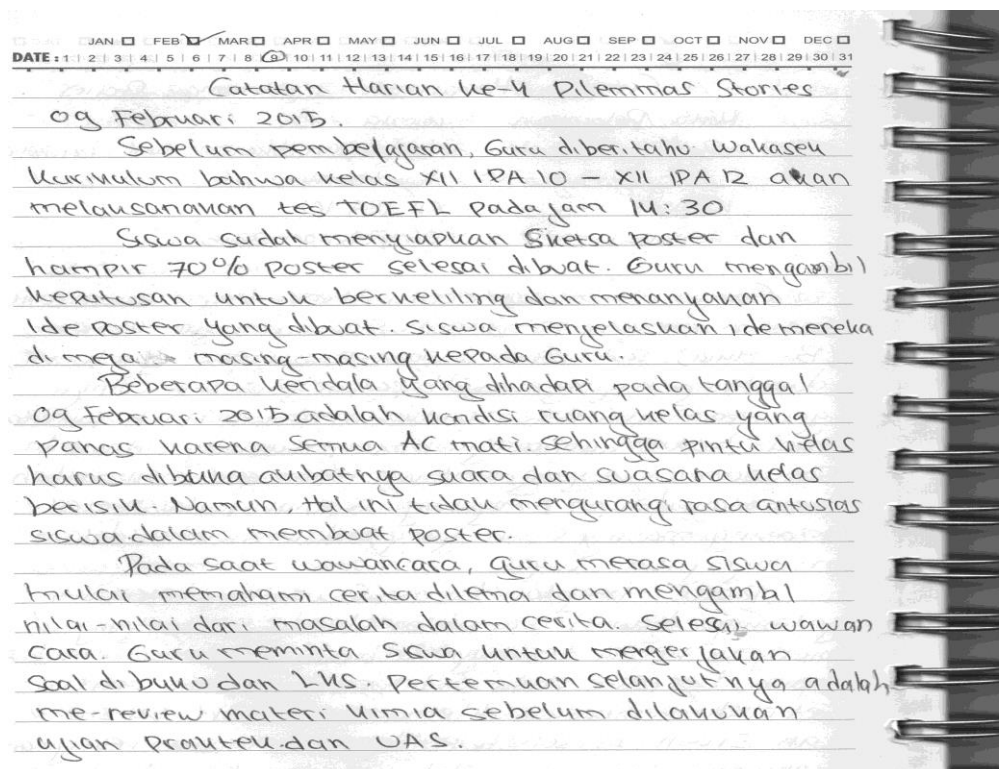 JAN FEB MAR APR MAY JUN JUL AUG SEP OCT NOV DEC
DATE : 1 2 3 4 5 6 7 8 9 10 11 12 13 14 15 16 17 18 19 20 21 22 23 24 25 26 27 28 29 30 31
Catatan Harian ke-4 Dilemmas Stories
09 Februari 2015.
Sebelum pembelajaran, Guru diberitahu Wakasek
Kurikulum bahwa kelas XII IPA 10 - XII IPA 12 akan
melaksanakan tes TOEFL pada jam 14:30
Siswa sudah menyiapkan Sketsa poster dan
hampir 70% poster selesai dibuat. Guru mengambil
keputusan untuk berkeliling dan menanyakan
Ide poster yang dibuat. Siswa menjelaskan ide mereka
di meja masing-masing kepada Guru.
Beberapa kendala yang dihadapi pada tanggal
09 Februari 2015 adalah kondisi ruang kelas yang
panas karena Semua AC mati. Sehingga pintu kelas
harus dibuka akibatnya suara dan suasana kelas
berisik. Namun, Hal ini tidak mengurangi rasa antusias
siswa dalam membuat poster.
Pada saat wawancara, guru merasa siswa
mulai memahami cerita dilema dan mengambil
nilai-nilai dari masalah dalam cerita. Selesai wawan
cara. Guru meminta Siswa untuk mengerjakan
Soal di buku dan LKS. Pertemuan selanjutnya adalah
me-review materi kimia sebelum dilakukan
ujian praktek dan UAS.